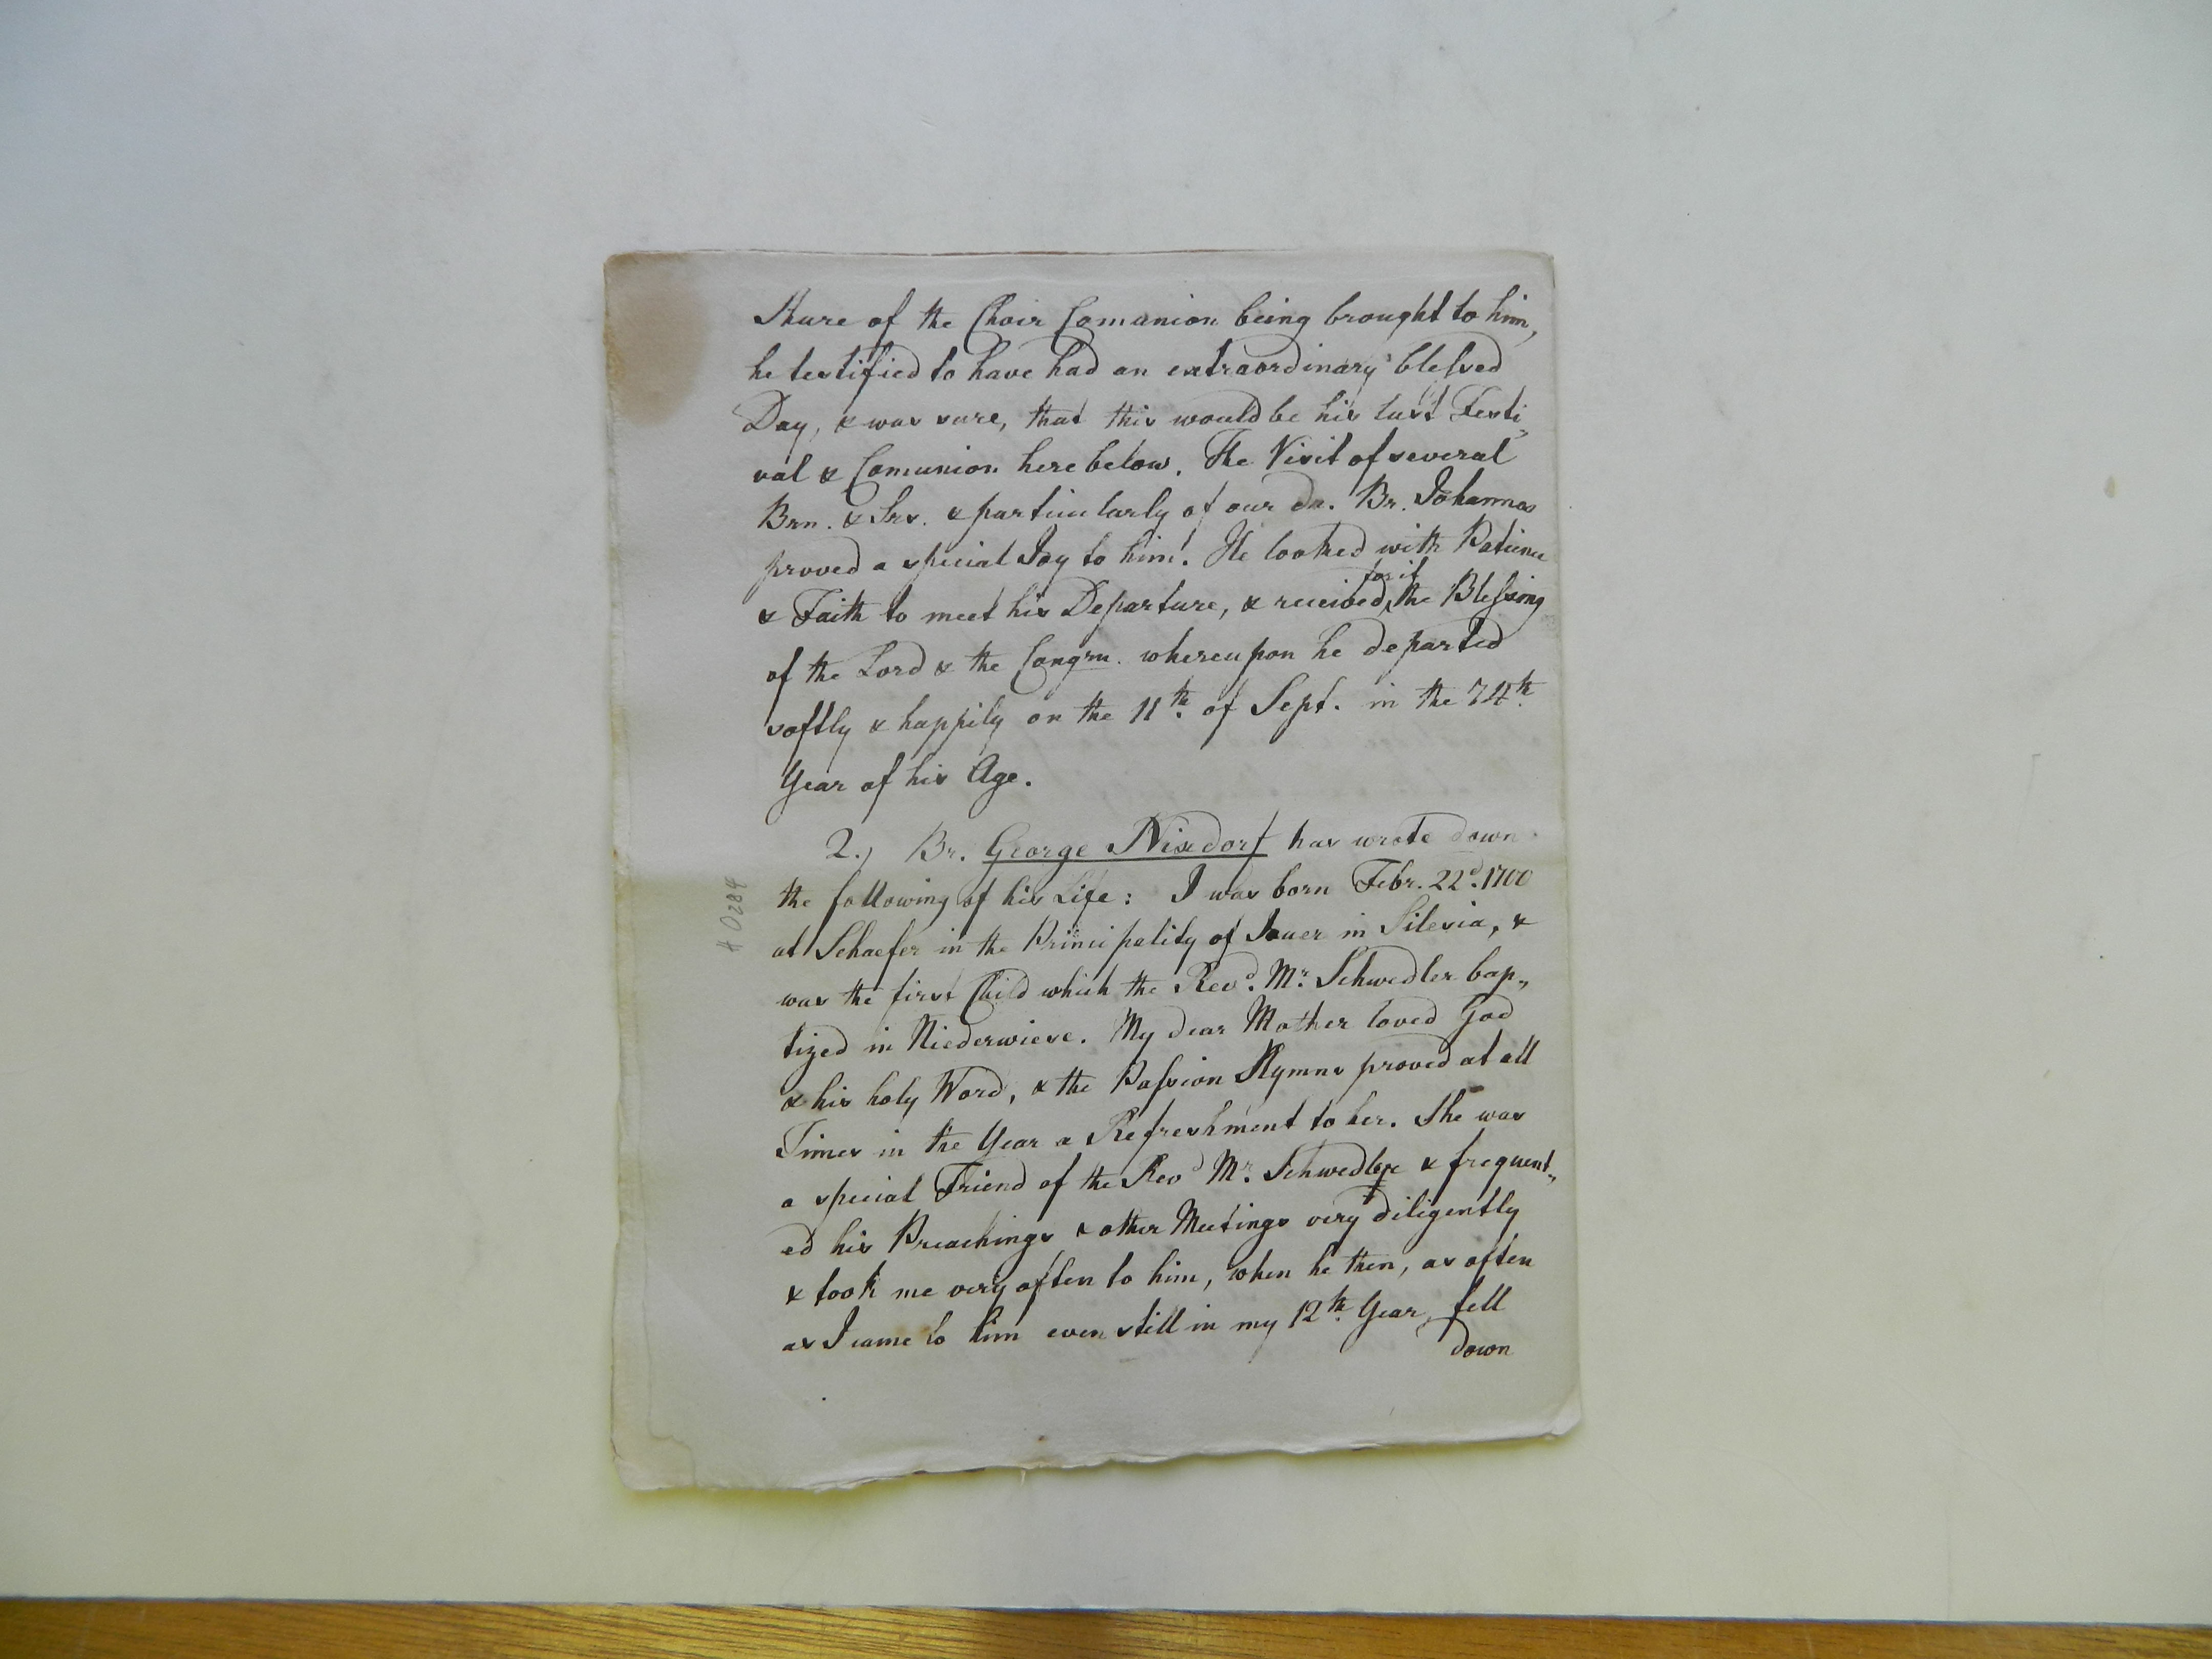 Share of the Choir Comunion being brought to him,
he testified to have had an extraordinary blessed
Day, & was sure, that this would be his last Festi„
val & Comunion here below. The Visit of several
Brn. & Srs. & particularly of our dr. Br. Johannes
proved a special Joy to him. He looked with Patience
& Faith to meet his Departure, & received for it the Blessing
of the Lord & the Congrn. whereupon he departed
softly & happily on the 11th. of Sept. in the 74th.
Year of his Age.
2.) Br. George Nixdorf has wrote down
the following of his Life: I was born Febr. 22d. 1700
at Schaefer in the Principality of Jauer in Silesia, &
was the first Child which the Revd. Mr. Schwedler bap„
tized in Niederwiese. My dear Mother loved God
& his holy Word, & the Passion Hymns proved at all
Times in the Year a Refreshment to her. She was
a special Friend of the Revd Mr. Schwedler & frequent„
ed his Preachings & other Meetings very diligently
& took me very often to him, when he then, as often
as I came to him even still in my 12th. Year, fell
down
# 0284